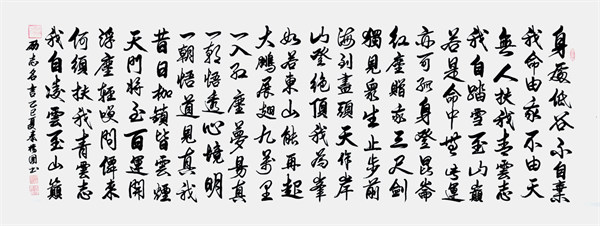 身處低谷不自棄
我命由我不由天
無人扶我青雲志
我自踏雪至山巔
若是命中無此運
亦可孤身登崑崙
紅塵贈我三尺劍
獨見眾生止步前
海到盡頭天作岸
山登絕頂我為峯
如若東山能再起
大鵬展翅九萬里
一入紅塵夢易真
一朝悟透心境明
一朝悟道見真我
昔日枷鎖皆雲煙
天門將至百運開
浮塵輕嘆問僊來
何須扶我青雲志
我自凌雲至山巔
励志名言乙巳夏